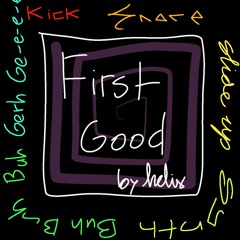 Kick
Snare
slide up
Synth
First
Good
by helix
Buh Buh
Buh Gerh Ge-e-e-e